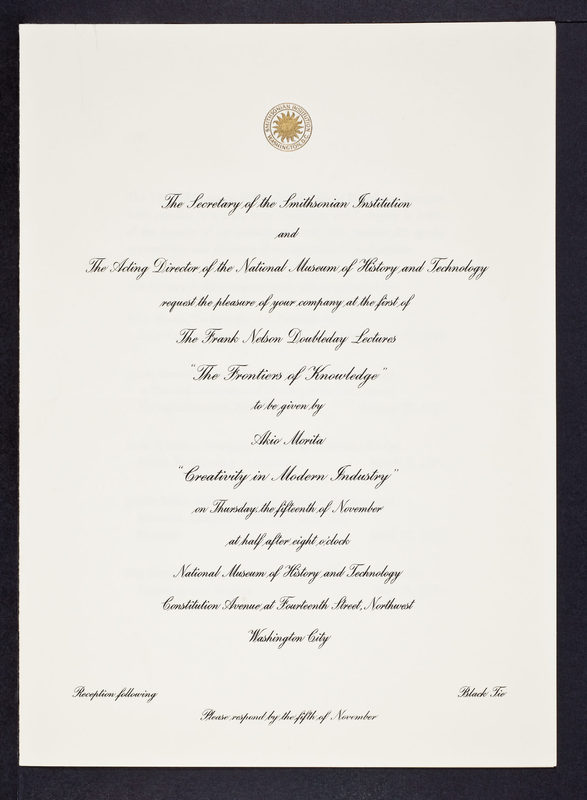 SMITHSONIAN INSTITUTION
WASHINGTON, D.C.
The Secretary of the Smithsonian Institution
and
The Acting Director of the National Museum of History and Technology
request the pleasure of your company at the first of
The Frank Nelson Doubleday Lectures
"The Frontiers of Knowledge"
to be given by
Akio Morita
"Creativity in Modern Industry"
on Thursday, the fifteenth of November
at half after eight o'clock
National Museum of History and Technology
Constitution Avenue at Fourteenth Street, Northwest
Washington City
Reception following
Black Tie
Please respond by the fifth of November